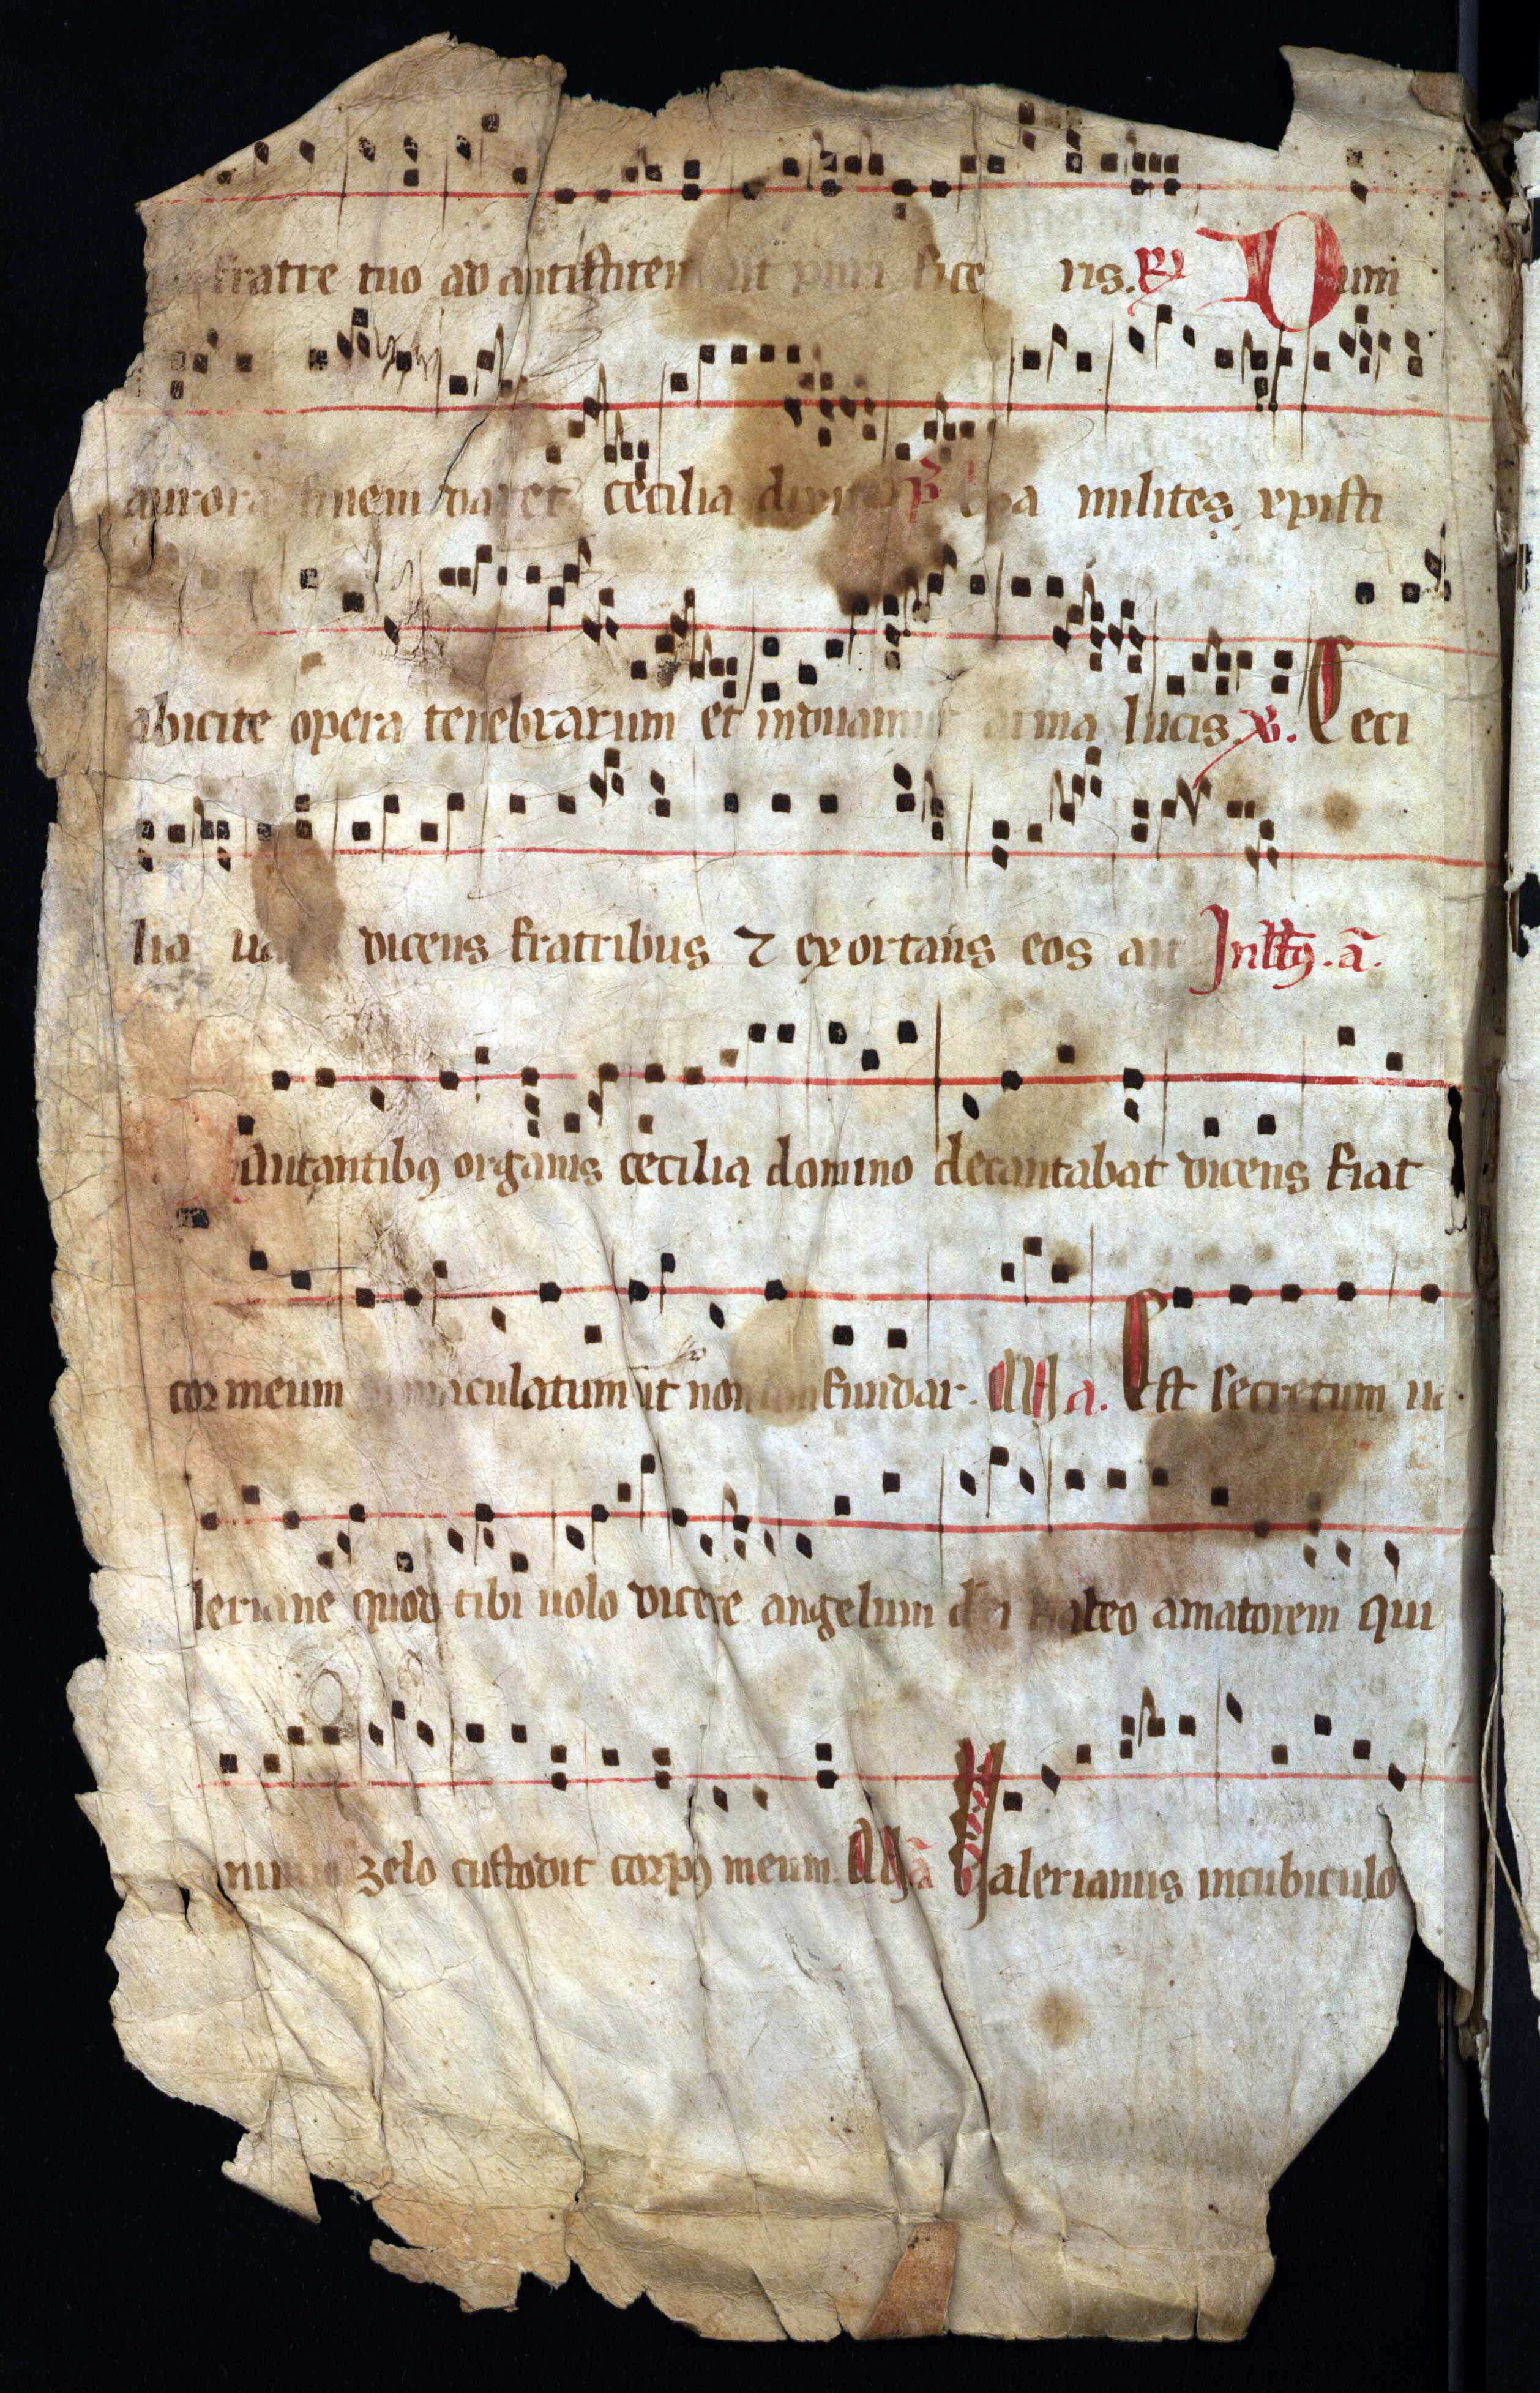 fratre tuo ad antistitem ut puri fice ris. R Dum
aurora finem daret cecilia dixit p a milites xpisti
abicite opera tenebrarum et induamur arma lucis. V. Ceci
lia dicens fratribus ⁊ exortans eos
antantibꝯ organis cecilia domino decantabat dicens fiat
cor meum maculatum ut non fundar. a. Est secretum ua
leriane quod tibi uolo dicere angelum dei habeo amatorem qui
zelo custodit corpꝯ meum. ā Valerianus incubiculo